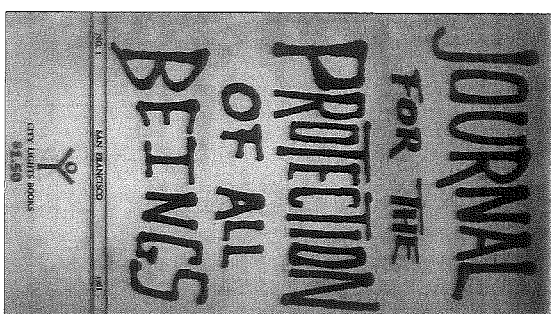 JOURNAL
FOR THE
PROTECTION
OF ALL
BEINGS
NO. 1 SAN FRANCISCO 1961
CITY LIGHTS BOOKS
$1.50